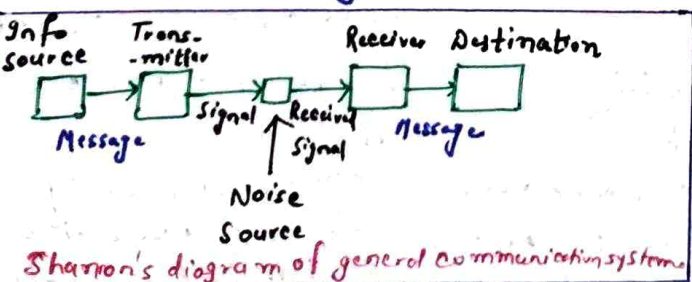 Info source
Trans-
-mitter
Receiver
Destination
Signal
Received Signal
Message
Message
Noise
Source
Shannon's diagram of general communication system.